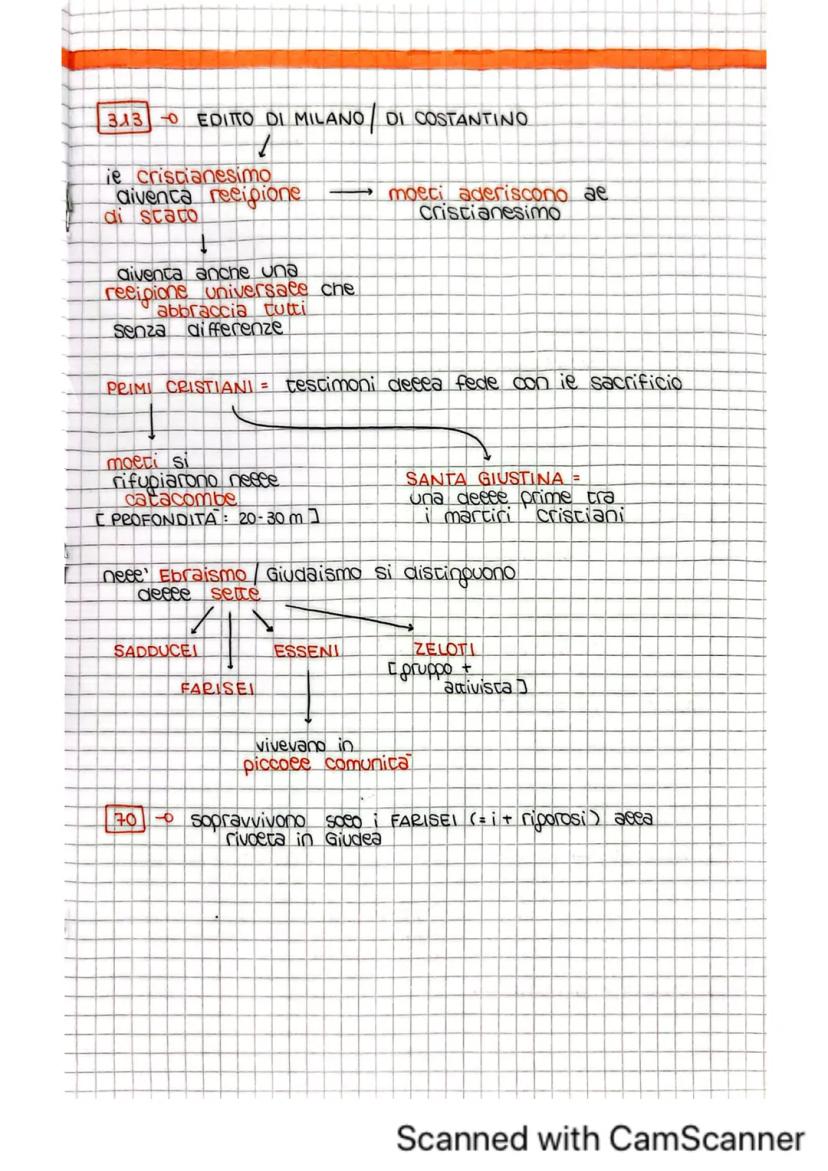 313 → EDITTO DI MILANO / DI COSTANTINO
il cristianesimo
diventa religione → molti aderiscono al
di stato cristianesimo
diventa anche una
religione universale che
abbraccia tutti
senza differenze
PRIMI CRISTIANI = testimoni della fede con il sacrificio
molti si
rifugiarono nelle
catacombe
[PROFONDITÀ: 20-30 m]
SANTA GIUSTINA =
una delle prime tra
i martiri cristiani
nell' Ebraismo / Giudaismo si distinguono
delle sette
SADDUCEI ESSENI ZELOTI
[gruppo +
attivista]
FARISEI
vivevano in
piccole comunità
70 → sopravvivono solo i FARISEI (= i + rigorosi) alla
rivolta in Giudea
Scanned with CamScanner